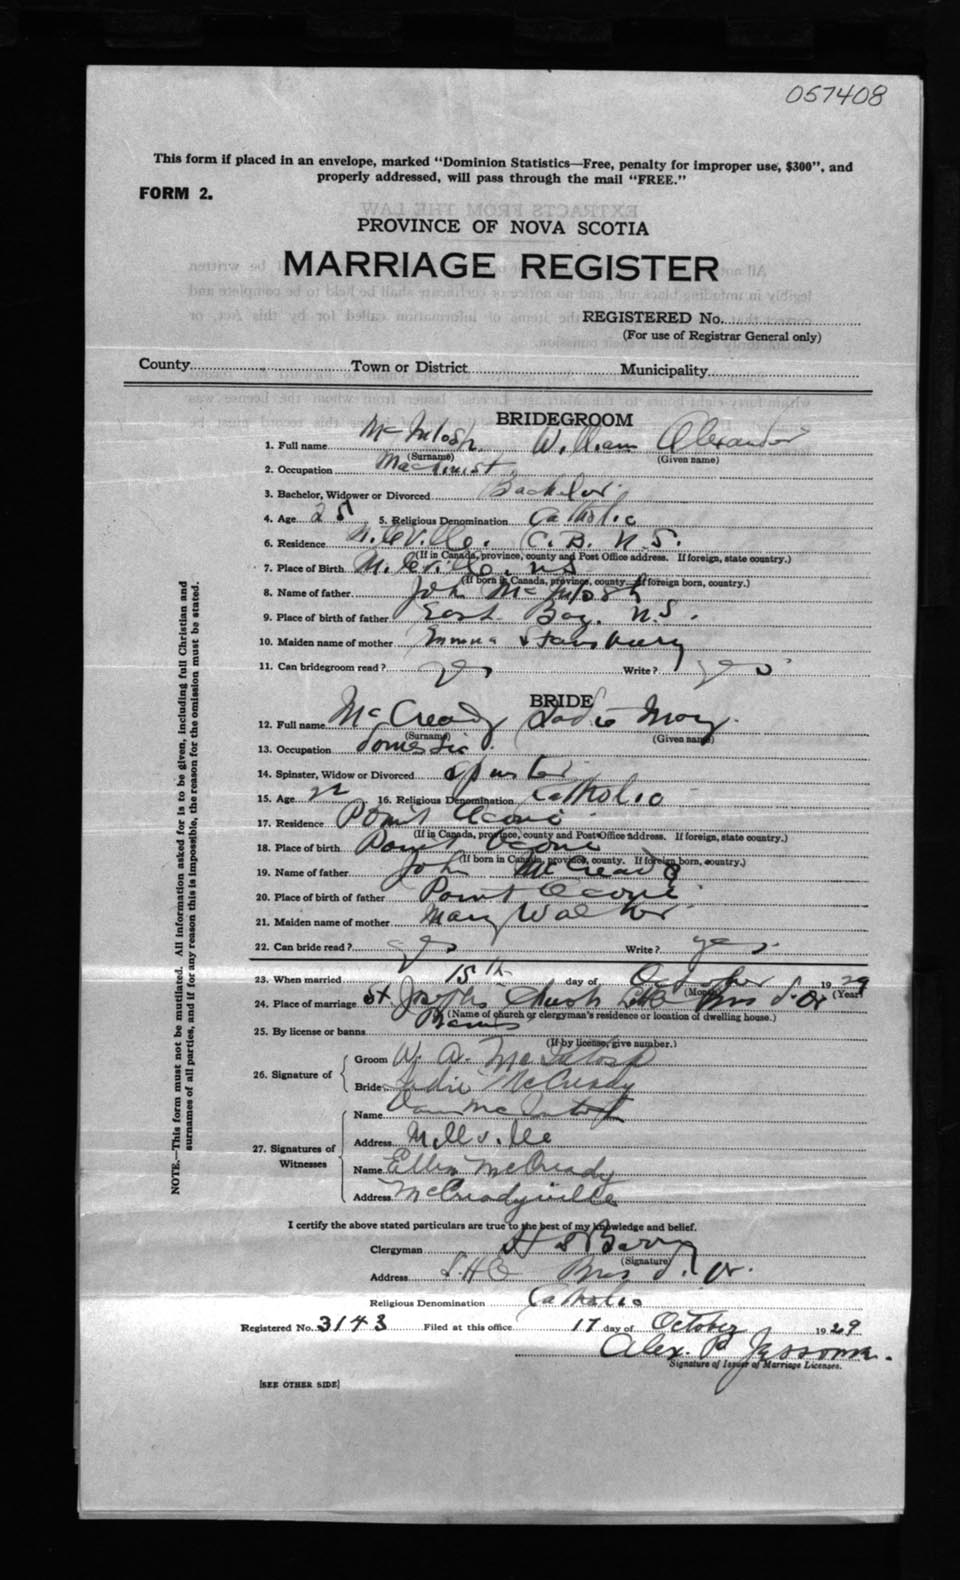 057408
This form if placed in an envelope, marked "Dominion Statistics—Free, penalty for improper use, $300", and
properly addressed, will pass through the mail "FREE."
FORM 2.
PROVINCE OF NOVA SCOTIA
MARRIAGE REGISTER
REGISTERED No.
(For use of Registrar General only)
County Town or District Municipality
BRIDEGROOM
1. Full name McIntosh William Alexander
(Surname) (Given name)
2. Occupation Machinist
3. Bachelor, Widower or Divorced Bachelor
4. Age 25 5. Religious Denomination Catholic
6. Residence C. B. N. S.
(If in Canada, province, county and Post Office address. If foreign, state country.)
7. Place of Birth N.S
(If born in Canada, province, county. If foreign born, country.)
8. Name of father John McIntosh
9. Place of birth of father East Bay, N.S.
10. Maiden name of mother
11. Can bridegroom read? yes Write? yes
BRIDE
12. Full name McCready Sadie May
(Surname) (Given name)
13. Occupation domestic
14. Spinster, Widow or Divorced Spinster
15. Age 22 16. Religious Denomination Catholic
17. Residence Point Aconi
(If in Canada, province, county and Post Office address. If foreign, state country.)
18. Place of birth Point Aconi
(If born in Canada, province, county. If foreign born, country.)
19. Name of father John McCready
20. Place of birth of father Point Aconi
21. Maiden name of mother Mary Walker
22. Can bride read? yes Write? yes
23. When married 15th day of October 1929
(Month) (Year)
24. Place of marriage St Josephs Church Bras d'Or
(Name of church or clergyman's residence or location of dwelling house.)
25. By license or banns Banns
(If by license, give number.)
26. Signature of
Groom W. A. McIntosh
Bride Sadie McCready
27. Signatures of Witnesses
Name McIntosh
Address Millville
Name Ellen McCready
Address McCreadyville
I certify the above stated particulars are true to the best of my knowledge and belief.
Clergyman Barry
(Signature)
Address Bras d'Or
Religious Denomination Catholic
Registered No. 3143 Filed at this office 17 day of October 1929
Alex. P.
Signature of Issuer of Marriage Licenses.
[SEE OTHER SIDE]
NOTE.—This form must not be mutilated. All information asked for is to be given, including full Christian and
surnames of all parties, and if for any reason this is impossible, the reason for the omission must be stated.